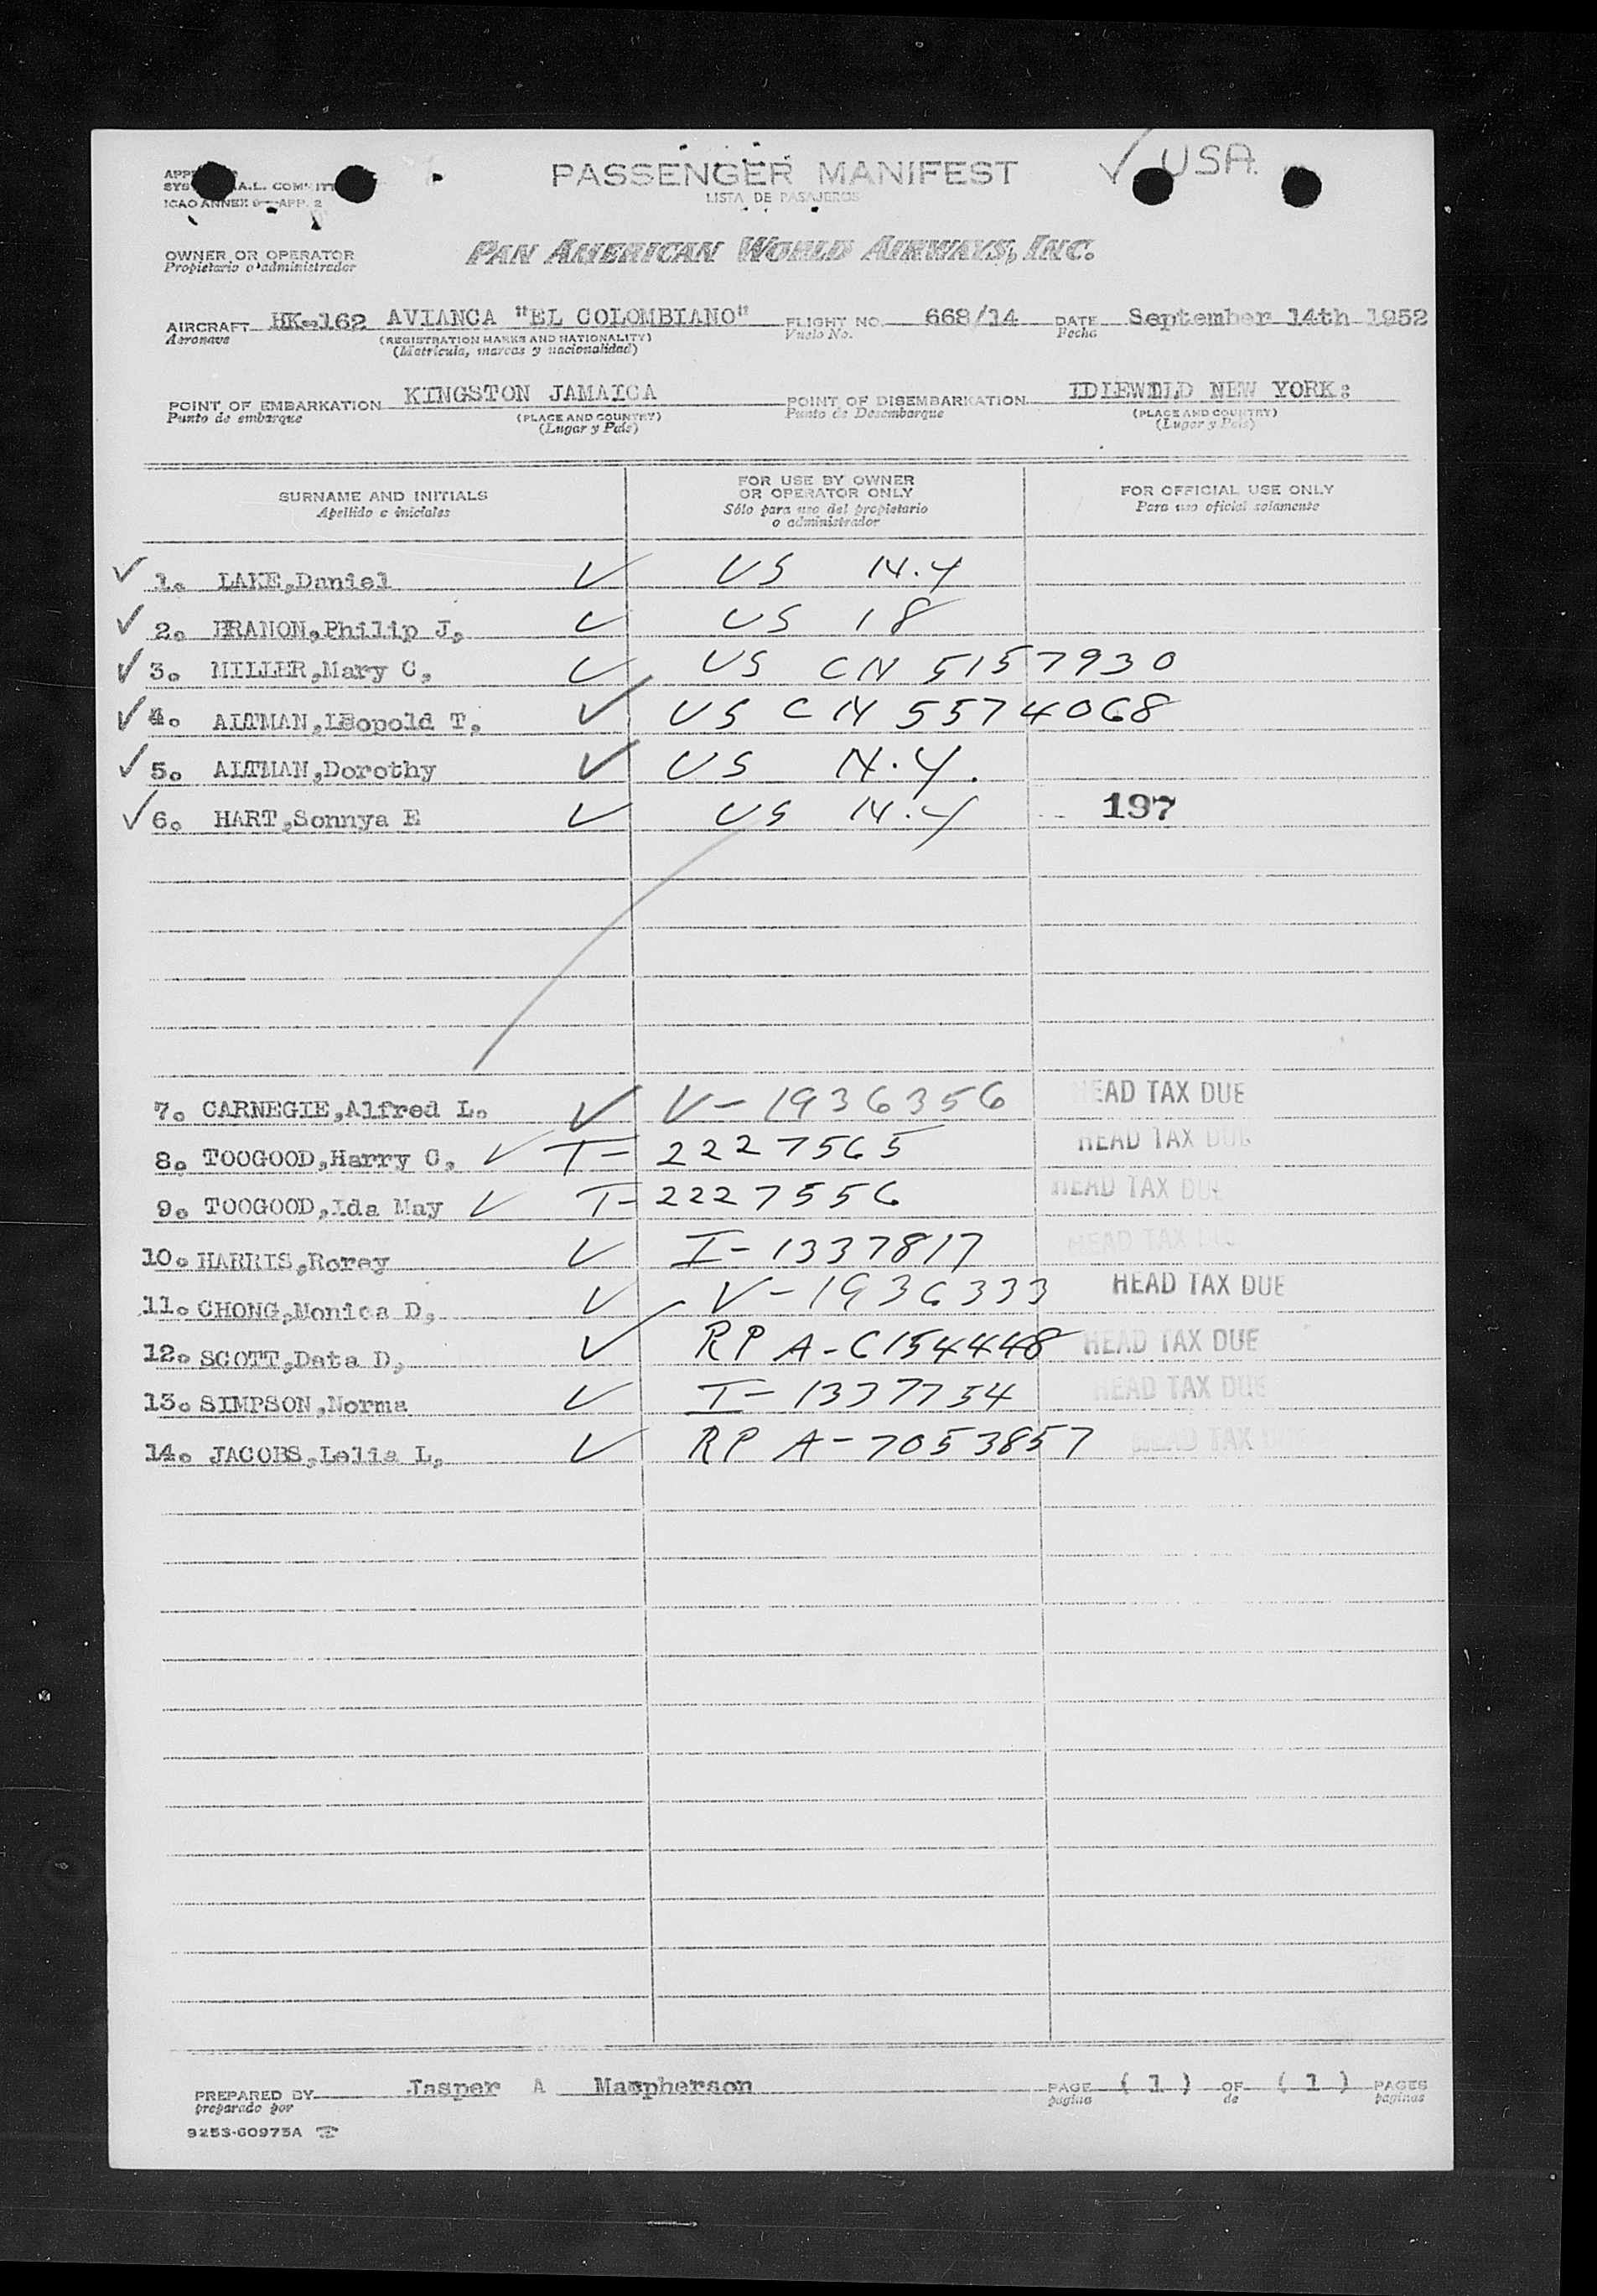 PASSENGER MANIFEST
✓ USA.
LISTA DE PASAJEROS
ICAO ANNEX 9—APP. 2
OWNER OR OPERATOR PAN AMERICAN WORLD AIRWAYS, INC.
Propietario o administrador
AIRCRAFT HK-162 AVIANCA "EL COLOMBIANO" FLIGHT NO. 668/14 DATE September 14th 1952
Aeronave (REGISTRATION MARKS AND NATIONALITY) Vuelo No. Fecha
(Matrícula, marcas y nacionalidad)
POINT OF EMBARKATION KINGSTON JAMAICA POINT OF DISEMBARKATION IDLEWILD NEW YORK:
Punto de embarque (PLACE AND COUNTRY) Punto de Desembarque (PLACE AND COUNTRY)
(Lugar y País) (Lugar y País)
SURNAME AND INITIALS FOR USE BY OWNER OR OPERATOR ONLY FOR OFFICIAL USE ONLY
Apellido e iniciales Sólo para uso del propietario o administrador Para uso oficial solamente
✓ 1. LAKE,Daniel ✓ US N.Y
✓ 2. BRANON,Philip J, ✓ US 18
✓ 3. MILLER,Mary C, ✓ US CN 5157930
✓ 4. ALTMAN,LEopold T. ✓ US CN 5574068
✓ 5. ALTMAN,Dorothy ✓ US N.Y.
✓ 6. HART,Sonnya E ✓ US N.Y 197
7. CARNEGIE,Alfred L. ✓ V-1936356 HEAD TAX DUE
8. TOOGOOD,Harry C. ✓ T-2227565 HEAD TAX DUE
9. TOOGOOD,Ida May ✓ T-2227556 HEAD TAX DUE
10. HARRIS,Rorey ✓ I-1337817 HEAD TAX DUE
11. CHONG,Monica D, ✓ V-1936333 HEAD TAX DUE
12. SCOTT,Data D, ✓ RP A-6154448 HEAD TAX DUE
13. SIMPSON,Norma ✓ I-1337754 HEAD TAX DUE
14. JACOBS,Lelia L, ✓ RP A-7053857 HEAD TAX DUE
PREPARED BY Jasper A Macpherson PAGE ( 1 ) OF ( 1 ) PAGES
preparado por página de páginas
9253-60975A